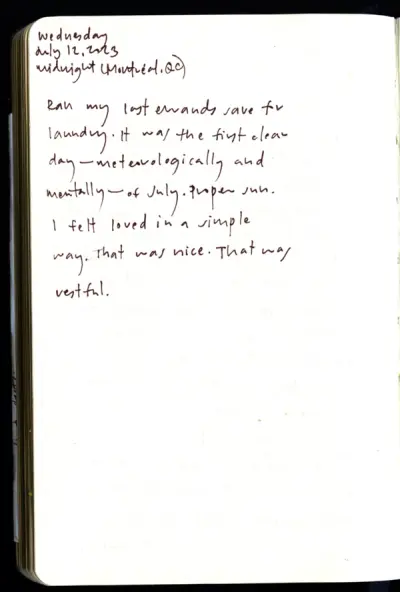 Wednesday
July 12, 2023
midnight (Montréal, QC)
Ran my last errands save for
laundry. It was the first clear
day—meteorologically and
mentally—of July. Proper sun.
I felt loved in a simple
way. That was nice. That was
restful.